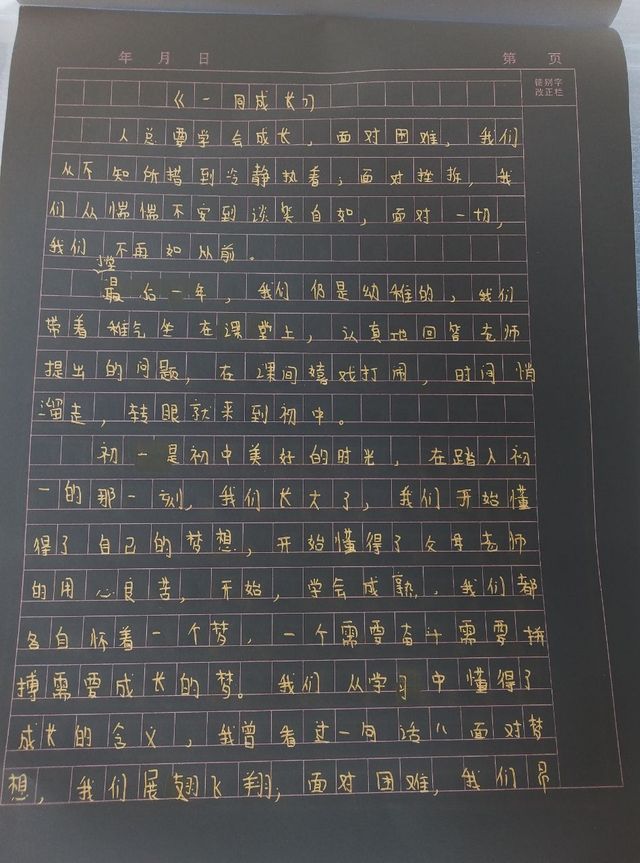 年 月 日 第 页
错别字
改正栏
《一同成长》
人总要学会成长，面对困难，我们
从不知所措到冷静执着；面对挫折，我
们从惴惴不安到谈笑自如，面对一切，
我们不再如从前。
小学
最后一年，我们仍是幼稚的，我们
带着稚气坐在课堂上，认真地回答老师
提出的问题，在课间嬉戏打闹，时间悄
溜走，转眼就来到初中。
初一是初中美好的时光，在踏入初
一的那一刻，我们长大了，我们开始懂
得了自己的梦想，开始懂得了父母老师
的用心良苦，开始，学会成熟，我们都
各自怀着一个梦，一个需要奋斗需要拼
搏需要成长的梦。我们从学习中懂得了
成长的含义，我曾看过一句话“面对梦
想，我们展翅飞翔；面对困难，我们昂